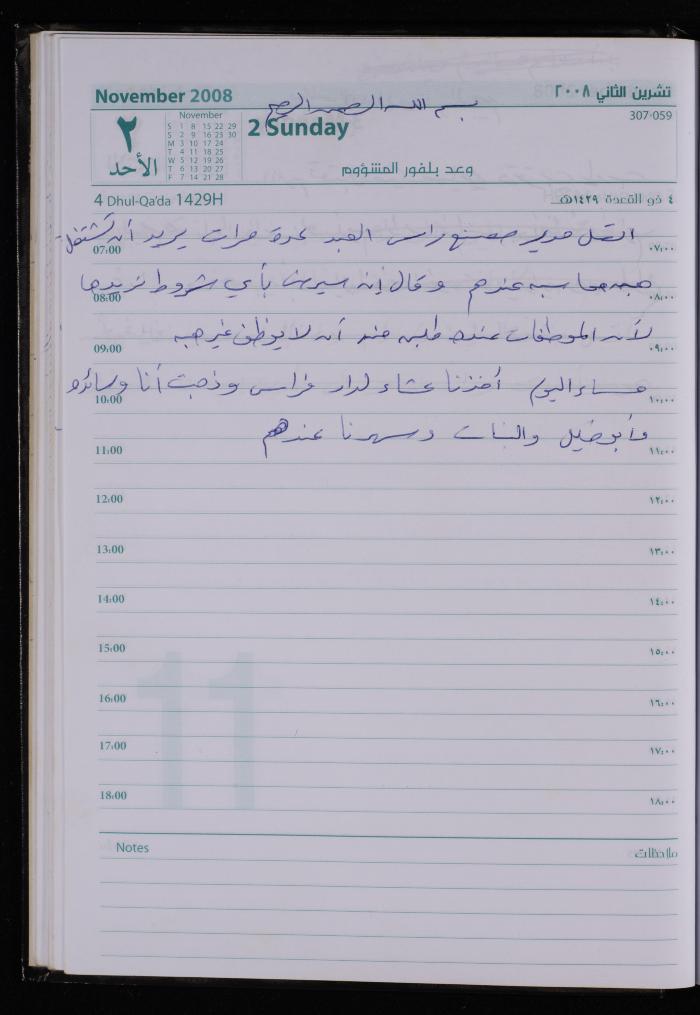 November 2008
تشرين الثاني ٢٠٠٨
بسم الله الرحمن الرحيم
307-059
٢
الأحد
November
S 1 8 15 22 29
S 2 9 16 23 30
M 3 10 17 24
T 4 11 18 25
W 5 12 19 26
T 6 13 20 27
F 7 14 21 28
2 Sunday
وعد بلفور المشؤوم
4 Dhul-Qa'da 1429H
٤ ذو القعدة ١٤٢٩هـ
اتصل مدير مصنع راس العبد عدة مرات يريد أن تشتغل
07:00 ٠٧:٠٠
هبه محاسبه عندهم وقال إنه سيرضى بأي شروط تريدها
08:00 ٠٨:٠٠
لأن الموظفات عنده طلبن منه أن لا يوظف غير هبه
09:00 ٠٩:٠٠
مساء اليوم أخذنا عشاء لدار فراس وذهبت أنا وسائده
10:00 ١٠:٠٠
وأبو فضيل والبنات وسهرنا عندهم
11:00 ١١:٠٠
12:00 ١٢:٠٠
13:00 ١٣:٠٠
14:00 ١٤:٠٠
15:00 ١٥:٠٠
16:00 ١٦:٠٠
17:00 ١٧:٠٠
18:00 ١٨:٠٠
11
Notes
ملاحظات